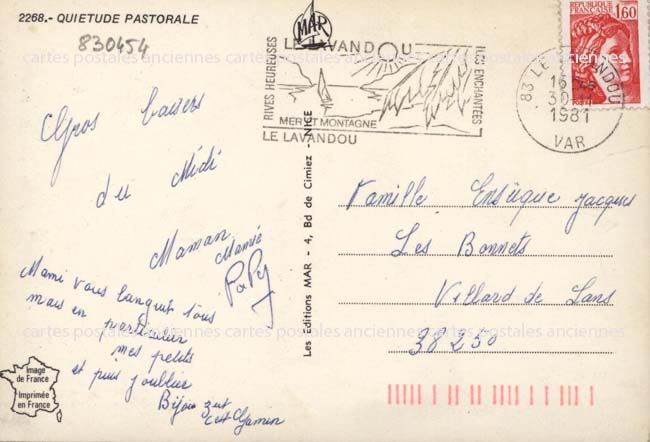 2268.- QUIETUDE PASTORALE
830454
Gros baisers
du Midi
Maman Mamie
PaPy
Mami vous languit tous
mais en particulier
mes petits
et puis j'oublie
Bijou zut
c'est Gamin
Image
de France
Imprimée
en France
Les Editions MAR - 4, Bd de Cimiez - NICE
MAR
RIVES HEUREUSES
LE LAVANDOU
ILES ENCHANTEES
MER ET MONTAGNE
LE LAVANDOU
83 LE LAVANDOU
16 H
30
1981
VAR
REPUBLIQUE
FRANÇAISE
1,60
POSTES
Famille Jacques
Les Bonnets
Villard de Lans
38250
cartes postales anciennes cartes postales anciennes cartes postales anciennes
cartes postales anciennes cartes postales anciennes cartes postales anciennes